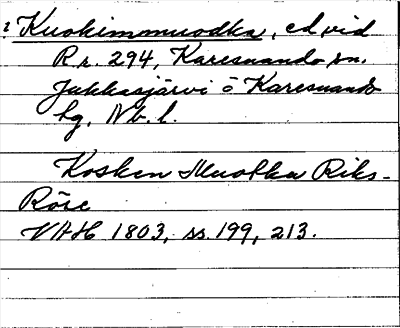 2 Kuokimmuodka, ed vid
R.r. 294, Karesuando sn.
Jukkasjärvi o Karesuando
lg, Nb. l.
Kosken Muotka Riks-
Röse
VHH 1803, ss. 199, 213.